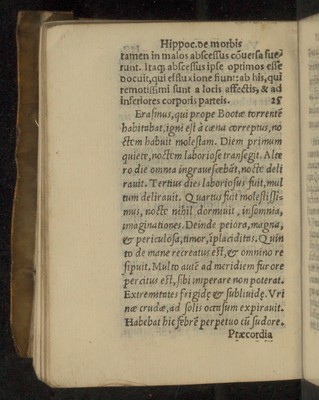 Hippoc. de morbis
tamen in malos abscessus cōuersa fue
runt. Itaq; abscessus ipse optimos esse
docuit, qui effluxione fiunt: ab his, qui
remotissimi sunt a locis affectis, & ad
inferiores corporis parteis. 25
Erasinus, qui prope Bootæ torrentē
habitabat, igni est à cœna correptus, no
ctem habuit molestam. Diem primum
quiete, noctem laboriose transegit. Alte
ro die omnia ingrauescebāt, nocte deli
rauit. Tertius dies laboriosus fuit, mul
tum delirauit. Quartus fuit molestissi=
mus, nocte nihil dormiuit, insomnia,
imaginationes. Deinde peiora, magna,
& periculosa, timor, īplaciditas. Quin
to de mane recreatus est, & omnino re
sipuit. Multo autē ad meridiem furore
percitus est, sibi imperare non poterat.
Extremitates frigidę & subliuidę. Vri
næ crudæ, ad solis occasum expirauit.
Habebat hic febrē perpetuo cū sudore.
Præcordia